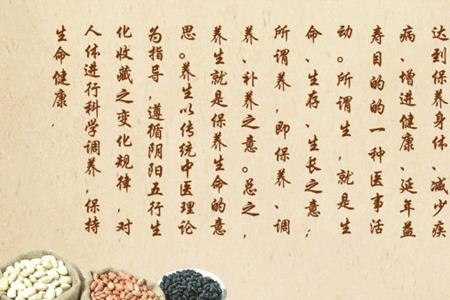 达到保养身体、减少疾
病、增进健康、延年益
寿目的的一种医事活
动。所谓生，就是生
命、生存、生长之意；
所谓养，即保养、调
养、补养之意。总之，
养生就是保养生命的意
思。养生以传统中医理论
为指导，遵循阴阳五行生
化收藏之变化规律，对
人体进行科学调养，保持
生命健康．